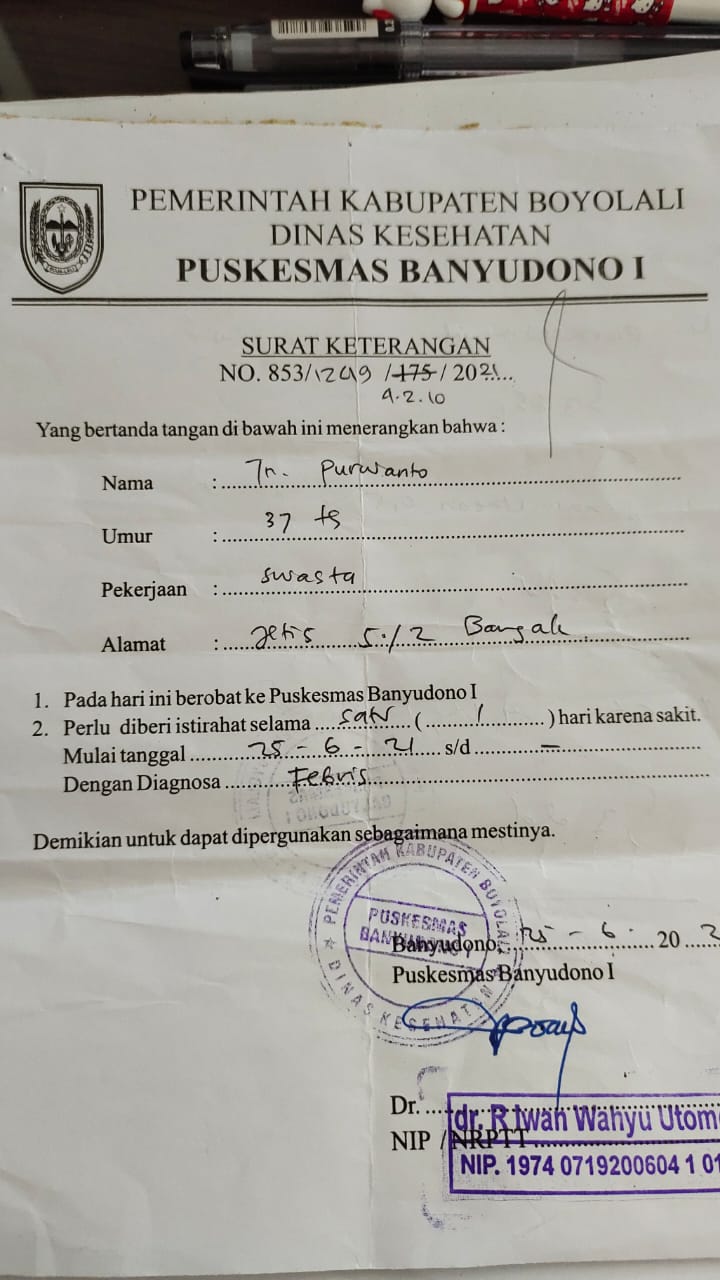 PEMERINTAH KABUPATEN BOYOLALI
DINAS KESEHATAN
PUSKESMAS BANYUDONO I
SURAT KETERANGAN
NO. 853/1249 /175/ 2021...
4.2.10
Yang bertanda tangan di bawah ini menerangkan bahwa :
Nama : Tn. Purwanto
Umur : 37 th
Pekerjaan : swasta
Alamat : Jetis 5/2 Bangak
1. Pada hari ini berobat ke Puskesmas Banyudono I
2. Perlu diberi istirahat selama satu ( 1 ) hari karena sakit.
Mulai tanggal 25 - 6 - 21 s/d –
Dengan Diagnosa Febris
Demikian untuk dapat dipergunakan sebagaimana mestinya.
PEMERINTAH KABUPATEN BOYOLALI
PUSKESMAS
DINAS KESEHATAN
Banyudono, 25 - 6 - 20 2
Puskesmas Banyudono I
Dr.
dr. R Iwan Wahyu Utom
NIP / NRPTT
NIP. 1974 0719200604 1 01